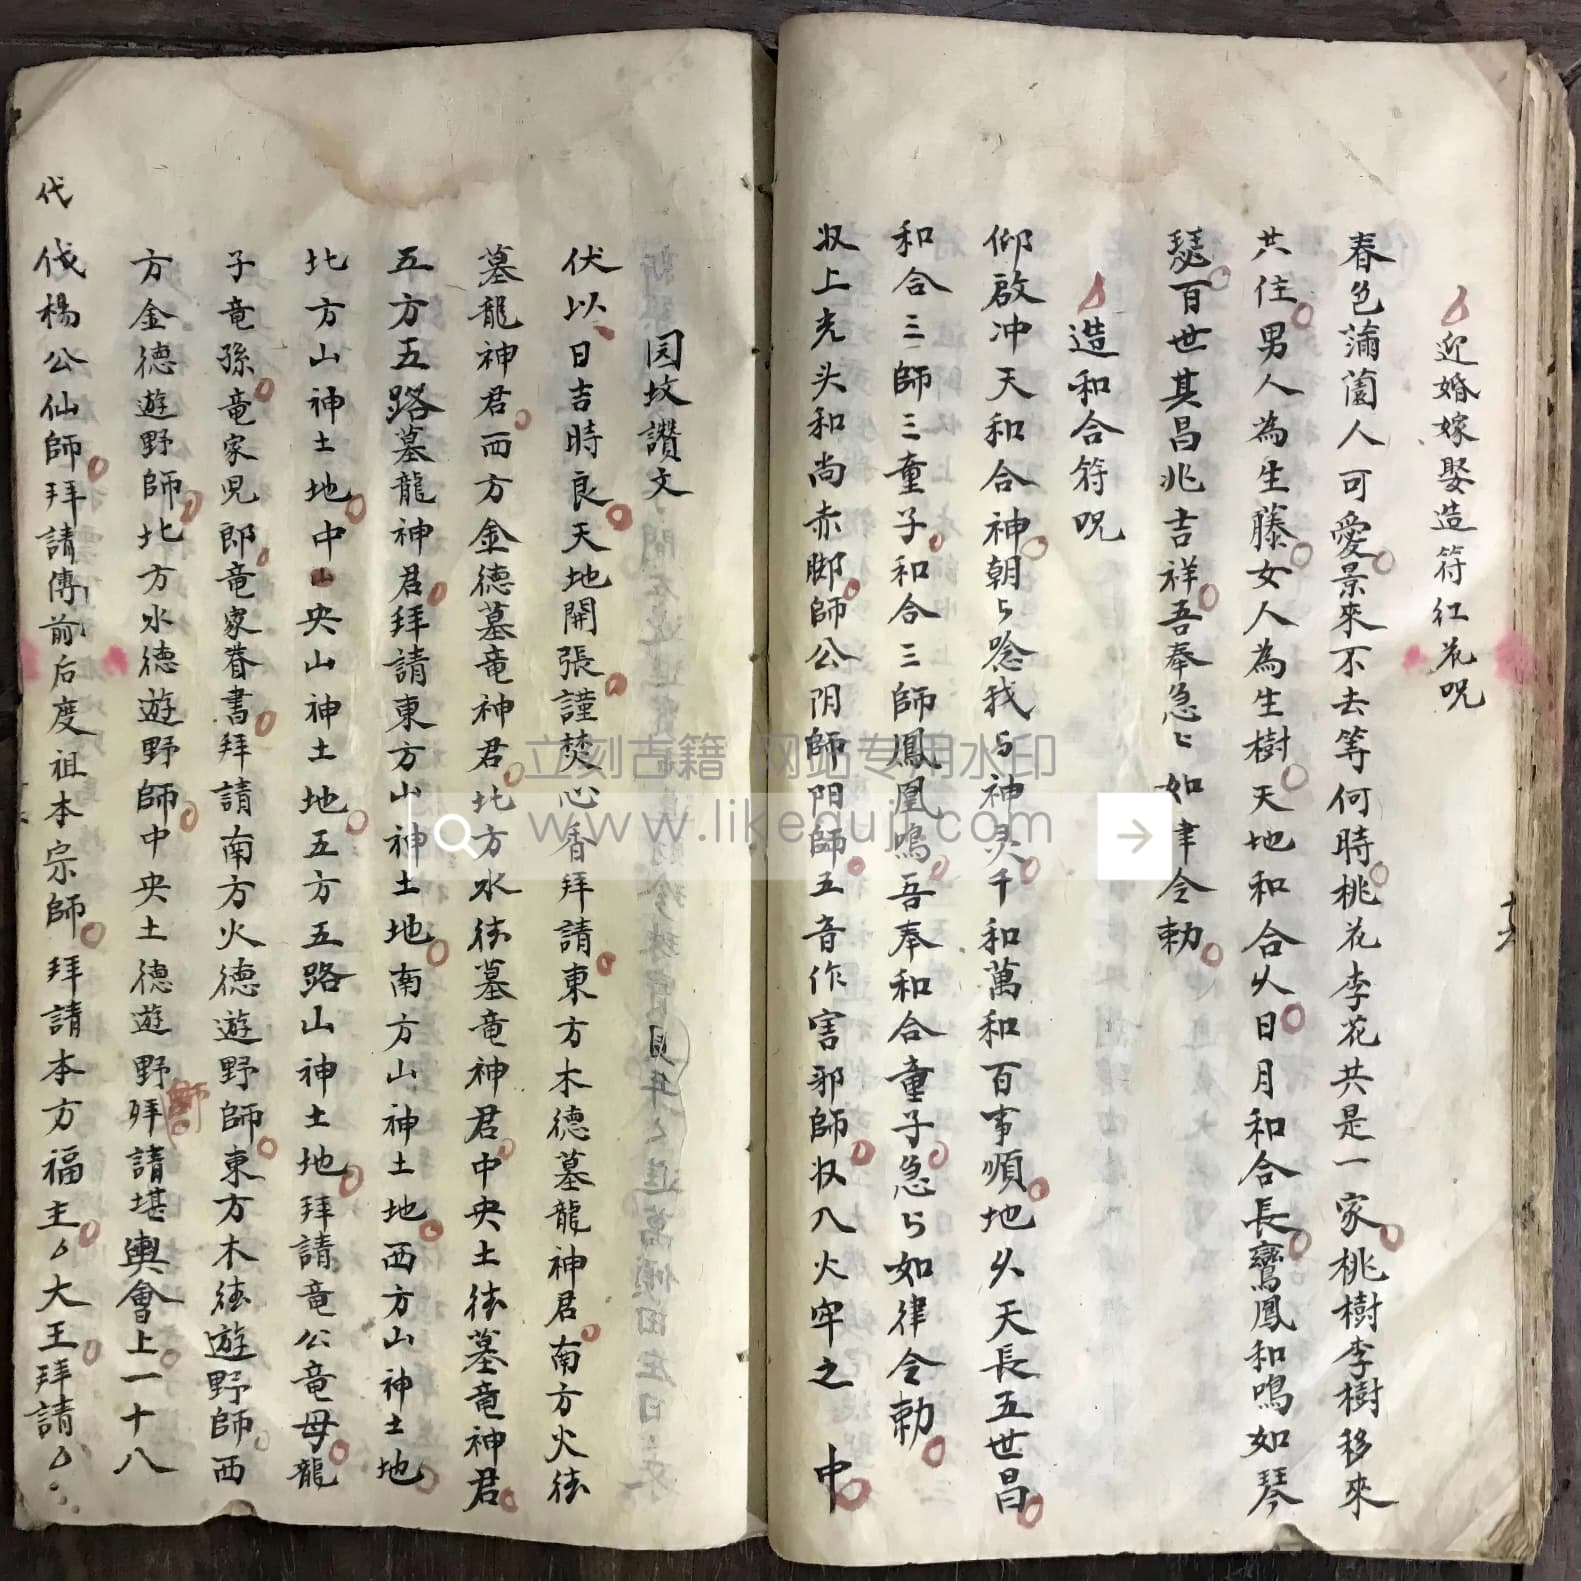 迎婚嫁娶造符红花呪
春色蒲園人可愛景來不去等何時桃花李花共是一家桃樹李樹移來
共住男人為生藤女人為生樹天地和合久日月和合長鸞鳳和鳴如琴
瑟百世其昌兆吉祥吾奉急匕如律令勅
造和合符呪
仰啟冲天和合神朝々唸我与神灵千和萬和百事順地久天長五世昌
和合三師三童子和合三師鳳凰鳴吾奉和合童子急々如律令勅
収上光头和尚赤脚師公阴師阳師五音作害邪師収入火牢之中
园坟讃文
伏以日吉時良天地開張謹焚心香拜請東方木德墓龍神君南方火德
墓龍神君西方金德墓竜神君北方水德墓竜神君中央土德墓竜神君
五方五路墓龍神君拜請東方山神土地南方山神土地西方山神土地
北方山神土地中央山神土地五方五路山神土地拜請竜公竜母龍
子竜孫竜家児郎竜家眷書拜請南方火德遊野師東方木德遊野師西
方金德遊野師北方水德遊野師中央土德遊野師拜請堪輿會上一十八
代伐楊公仙師拜請傳前后度祖本宗師拜請本方福主厶大王拜請厶
立刻古籍 网站专用水印
www.likeguji.com